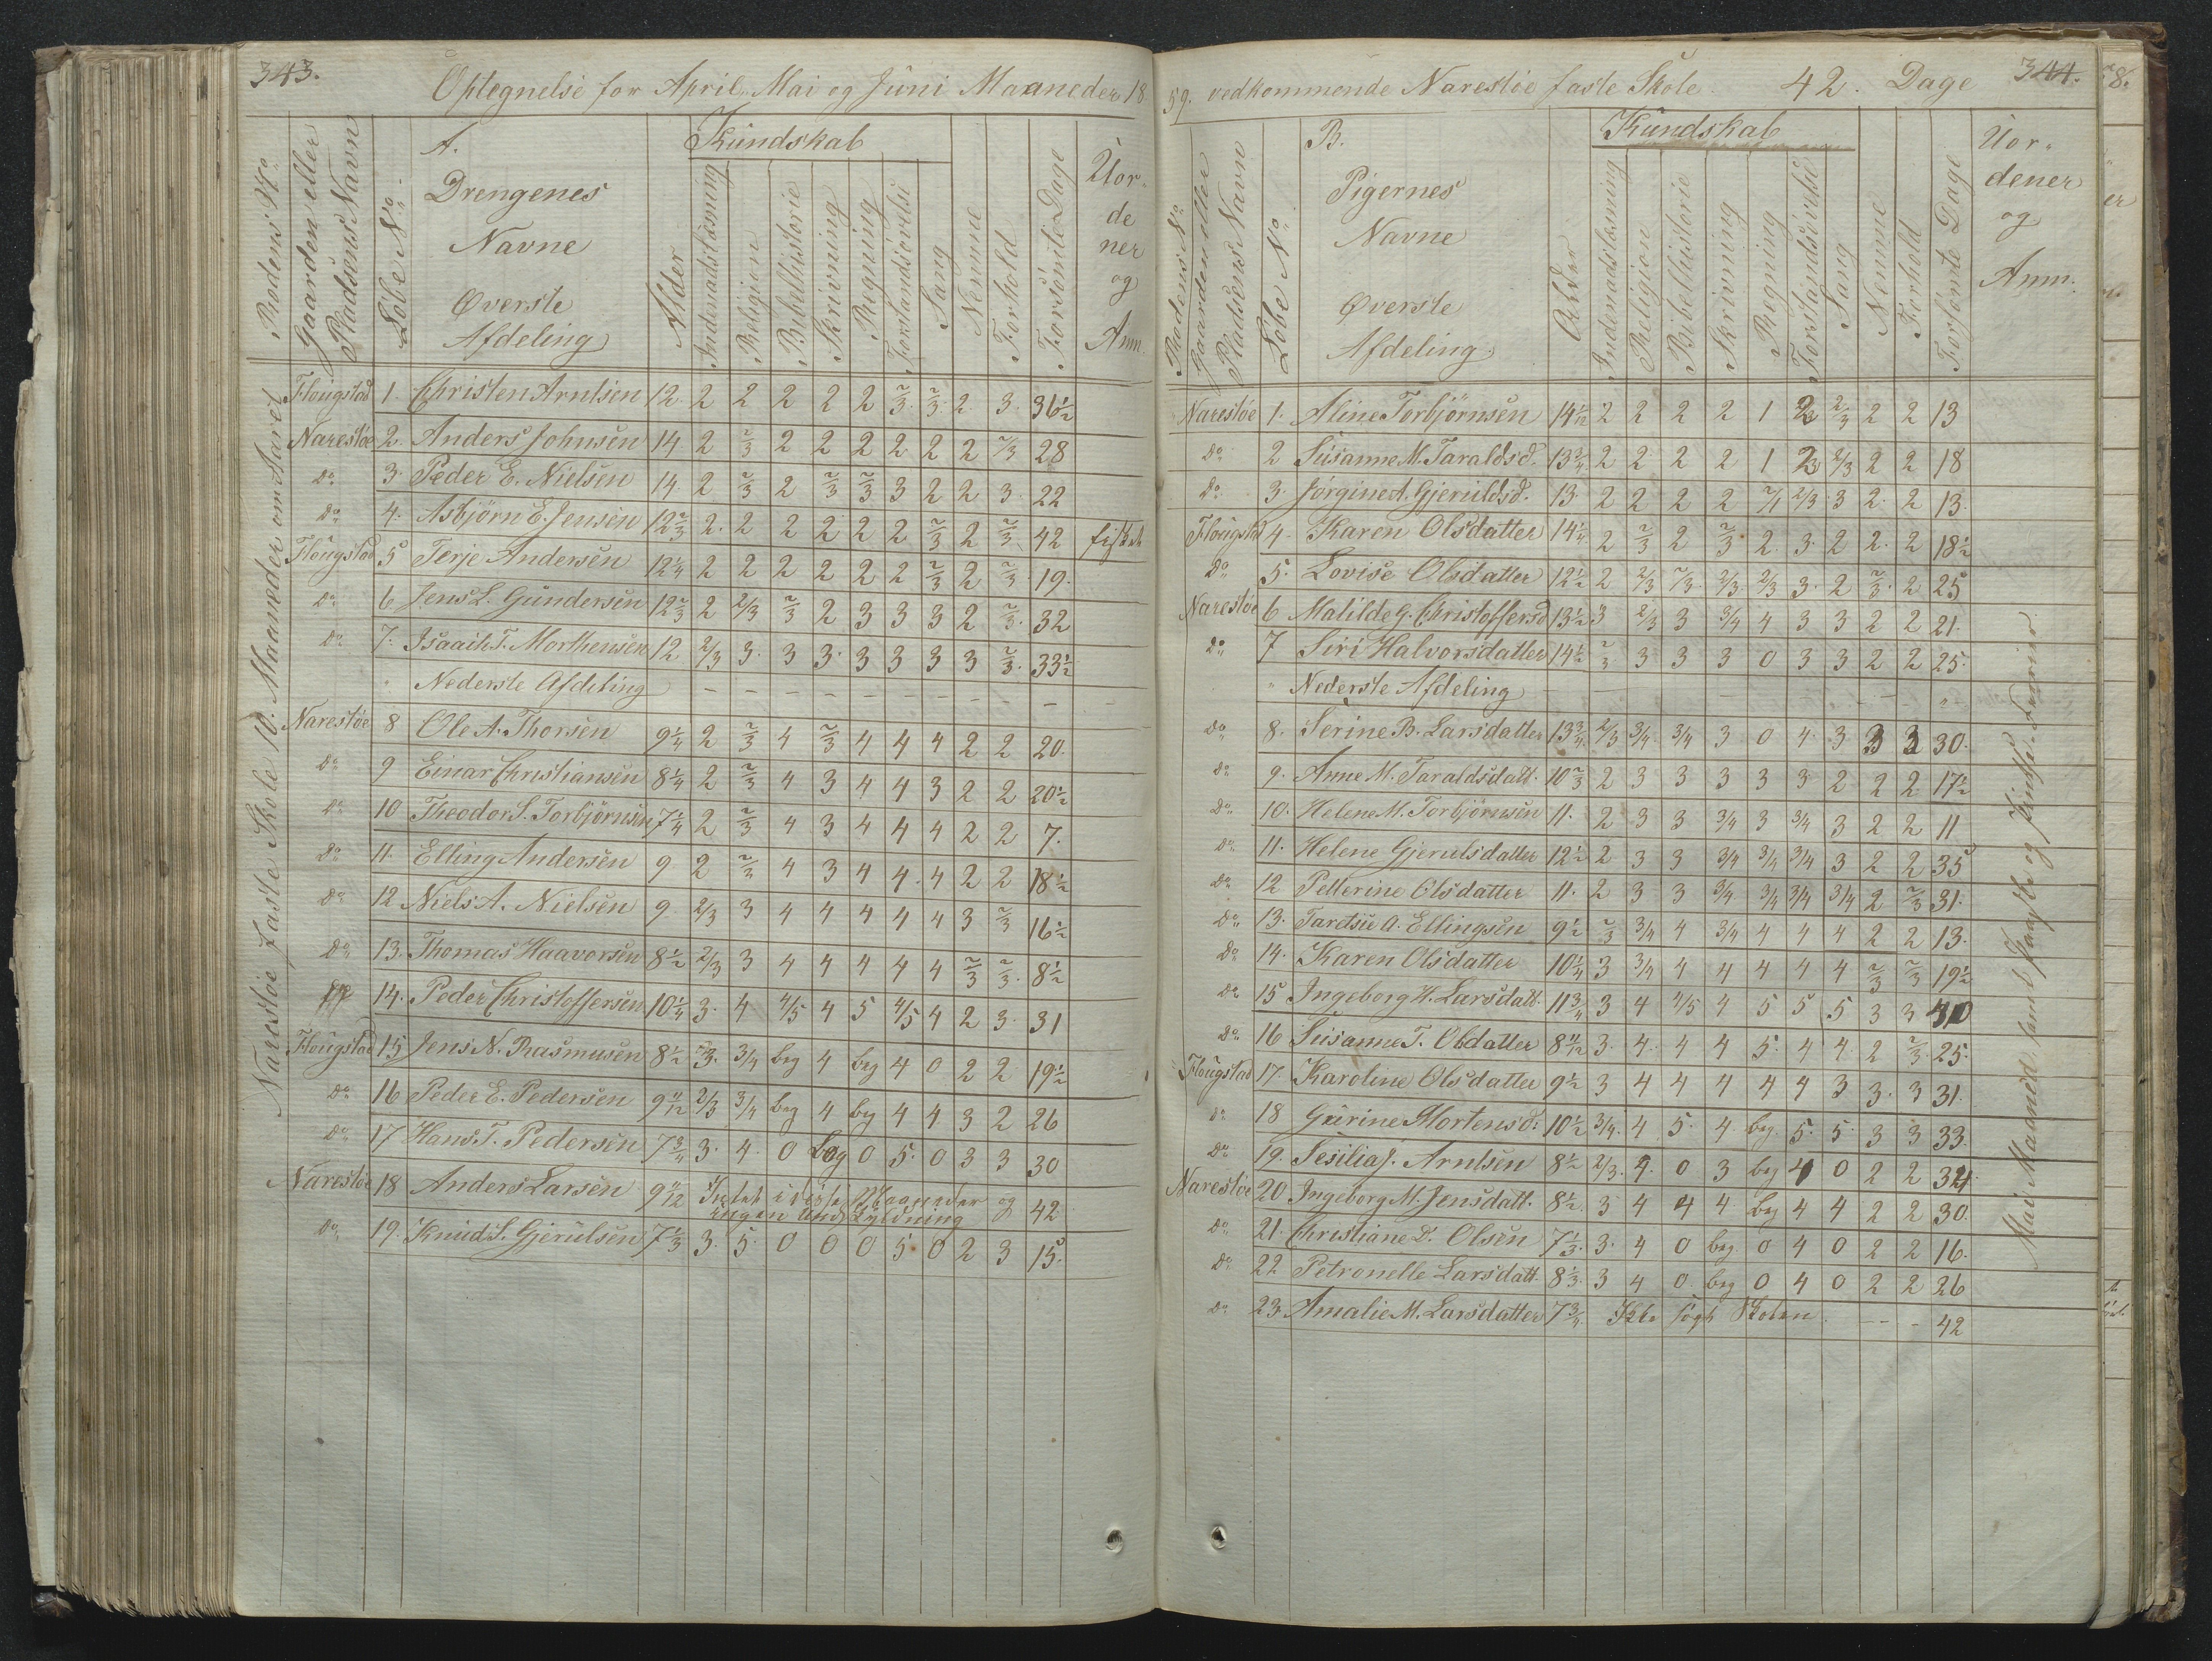 343.
Optegnelse for April, Mai og Juni Maaneder 18
Kundskab
Rodens No
Gaardens eller Pladsens Navn
Löbe No
A. Drengenes Navne Øverste Afdeling
Alder
Indenadslæsning
Religion
Bibelhistorie
Skrivning
Regning
Forstandsövelse
Sang
Nemme
Forhold
Forsömte Dage
Uor-
de
ner
og
Anm.
Narestöe faste Skole 10. Maaneder om Aaret
Flougstad 1. Christen Arntsen 12 2 2 2 2 2 2/3 2/3 2 3 36 1/2
Narestöe 2. Anders Johnsen 14 2 2/3 2 2 2 2 2 2 2/3 28
do 3. Peder E. Nielsen 14 2 2/3 2 2/3 2/3 3 2 2 3 22
do 4. Asbjörn E. Jensen 12 2/3 2 2 2 2 2 2 2/3 2 2/3 42 fisket
Flougstad 5 Terje Andersen 12 1/4 2 2 2 2 2 2 2/3 2 2/3 19.
do 6 Jens L. Gundersen 12 2/3 2 2/3 2/3 2 3 3 3 2 2/3 32
do 7. Isaach T. Morthensen 12 2/3 3 3 3 3 3 3 3 2/3 33 1/2
Nederste Afdeling
Narestöe 8 Ole A. Thorsen 9 1/4 2 2/3 4 2/3 4 4 4 2 2 20
do 9 Einar Christiansen 8 1/4 2 2/3 4 3 4 4 3 2 2 20 1/2
do 10 Theodor S. Torbjörnsen 7 1/4 2 2/3 4 3 4 4 4 2 2 7.
do 11. Elling Andersen 9 2 2/3 4 3 4 4 4 2 2 18 1/2
do 12 Niels A. Nielsen 9 2/3 3 4 4 4 4 4 3 2/3 16 1/2
do 13. Thomas Haavorsen 8 1/2 2/3 3 4 4 4 4 4 2/3 2/3 8 1/2
14. Peder Christoffersen 10 1/4 3 4 4/5 4 5 4/5 4 2 3 31
Flougstad 15 Jens N. Rasmusen 8 1/2 2/3 3/4 beg 4 beg 4 0 2 2 19 1/2
do 16 Peder E. Pedersen 9 11/12 2/3 3/4 beg 4 beg 4 4 3 2 26
do 17 Hans T. Pedersen 7 3/4 3 4 0 beg 0 5 0 3 3 30
Narestöe 18 Anders Larsen 9 11/12 Intet i disse Maaneder og 42
ingen Undskyldning
do 19. Knud S. Gjerulsen 7 1/3 3 5 0 0 0 5 0 2 3 15.
344.
59. vedkommende Narestöe faste Skole. 42. Dage
Kundskab
Rodens No
Gaarden eller Pladsens Navn
Löbe No
B. Pigernes Navne Øverste Afdeling
Alder
Indenadslæsning
Religion
Bibelhistorie
Skrivning
Regning
Forstandsövelse
Sang
Nemme
Forhold
Forsömte Dage
Uor-
dener
og
Anm.
Narestöe 1. Aline Torbjörnsen 14 1/12 2 2 2 2 1 2/3 2 2 13
do 2 Susanne M. Taraldsd. 13 3/4 2 2 2 2 1 2/3 2 2 18
do 3. Jörgine A. Gjeruldsd. 13 2 2 2 2 2/1 2/3 3 2 2 13
Flougstad 4. Karen Olsdatter 14 1/4 2 2/3 2 2/3 2 3 2 2 2 18 1/2
do 5. Lovise Olsdatter 12 1/2 2 2/3 2/3 2/3 2/3 3 2 2/3 2 25
Narestöe 6 Matilde G. Christoffersd 13 1/2 3 2/3 3 3/4 4 3 3 2 2 21
do 7 Siri Halvorsdatter 14 1/2 2/3 3 3 3 0 3 3 2 2 25
Nederste Afdeling
do 8. Serine B. Larsdatter 13 3/4 2/3 3/4 3/4 3 0 4 3 3 3 30
do 9. Anne M. Taraldsdatt. 10 2/3 2 3 3 3 3 3 2 2 2 17 1/2
do 10. Helene M. Torbjörnsen 11. 2 3 3 3/4 3 3/4 3 2 2 11
do 11. Helene Gjerulsdatter 12 1/2 2 3 3 3/4 3/4 3/4 3 2 2 35
do 12 Petterine Olsdatter 11. 2 3 3 3/4 3/4 3/4 3/4 2 2/3 31.
do 13. Taretsie A. Ellingsen 9 1/2 2/3 3/4 4 3/4 4 4 4 2 2 13.
do 14. Karen Olsdatter 10 1/4 3 3/4 4 4 4 4 4 2/3 2/3 19 1/2
do 15 Ingeborg H. Larsdatt. 11 3/4 3 4 4/5 4 5 5 5 3 3
do 16 Susanne T. Olsdatter 8 11/12 3 4 4 4 5 4 4 2 2/3 25
Flougstad 17. Karoline Olsdatter 9 1/2 3 4 4 4 4 4 3 3 3 31.
do 18 Gurine Mortensd: 10 1/2 3/4 4 5 4 beg. 5 5 3 3 33
do 19. Sesilia J. Arntsen 8 1/2 2/3 4 0 3 beg 4 0 2 2
Narestöe 20 Ingeborg M. Jensdatt. 8 1/2 3 4 4 4 beg 4 4 2 2 30
do 21. Christiane D. Olsen 7 1/3 3 4 0 beg 0 4 0 2 2 16.
do 22 Petronelle Larsdatt. 8 1/3 3 4 0 beg 0 4 0 2 2 26
do 23. Amalie M. Larsdatter 7 3/4 Ikke sögt Skolen - - - 42
Mai Maaned samt Paaske og Pintse-Ferier